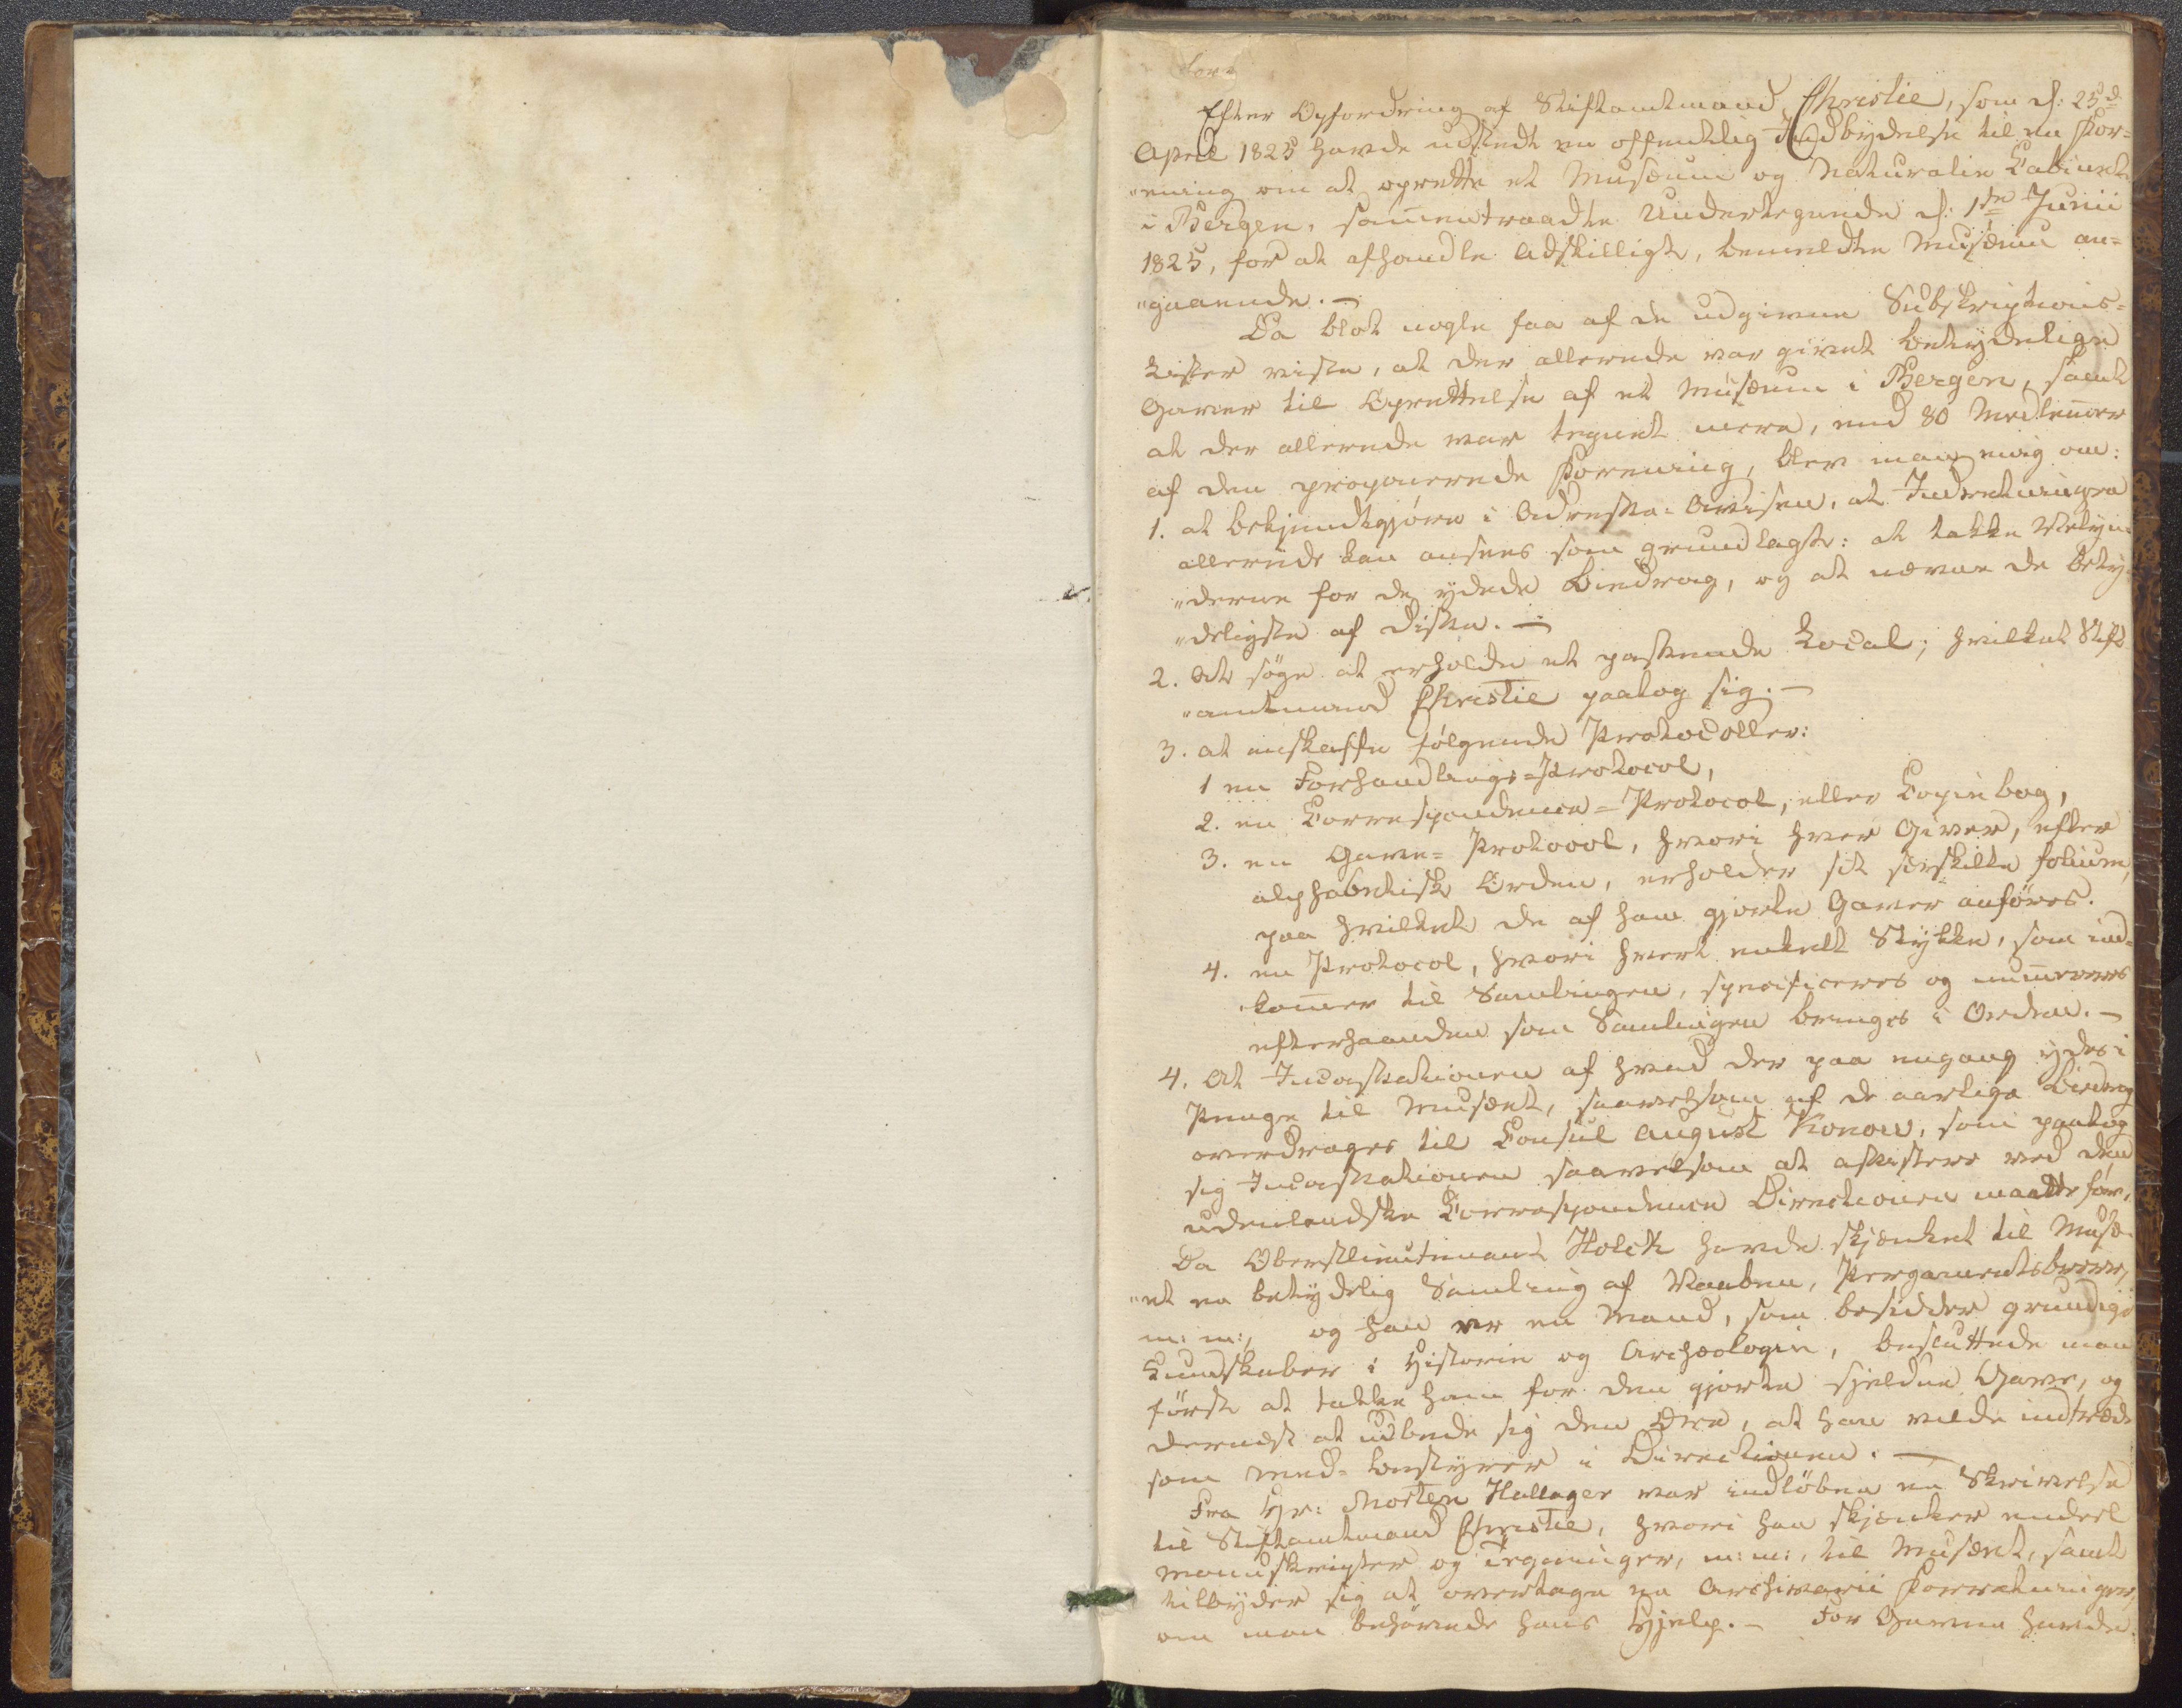 Efter Opfordring af Stiftamtmand Christie, som d: 25d
April 1825 havde udstedt en offentlig Indbydelse til en For=
"ening om at oprette et Musæum og Naturalie Cabinet
i Bergen, sam̄entraadte Undertegnede d: 1ste Junii
1825, for at afhandle Adskilligt, bemeldte Musæum an=
"gaaende. —
Da blot nogle faa af de udgivne Subskriptions=
Lister viste, at der allerede var givet betydelige
Gaver til Oprettelse af et Musæum i Bergen, samt
at der allerede var tegnet mere, end 80 Medlem̄er
af den proponerede Forening, blev man enig om:
1. at bekjendtgjøre i Adresse=Avisen, at Indretningen
allerede kan ansees som grundlagt: at takke Vedkom
"derne for de ydede Biedrag, og at nævne de bety=
"deligste af disse. —
2. At søge at erholde et passende Local; hvilket Stift
"amtmand Christie paatog sig. —
3. at anskaffe følgende Protocoller:
1 en Forhandlings=Protocol,
2. en Correspondence=Protocol, eller Copiebog,
3. en Gave=Protocol, hvori hver Giver, efter
alphabetisk Orden, erholder sit særskilte folium,
paa hvilket de af ham gjorte Gaver anføres.
4. en Protocol, hvori hvert enkelt Stykke, som ind=
kom̄er til Samlingen, specificeres og num̄ereres
efterhaanden som Samlingen bringes i Orden. —
4. At Incassationen af hvad der paa engang ydes i
Penge til Musæet, saavelsom af de aarlige Biedrag
overdrages til Consul August Konow, som paatog
sig Incassationen saavelsom at assistere ved den
udenlandske Correspondence Directionen maatte føre.
Da Oberstlieutenant Holck havde skjænket til Musæ
"et en betydelig Samling af Vaaben, Pergamentsbreve,
m: m:, og han er en Mand, som besidder grundige
Kundskaber i Historie og Archæologie, besluttede man
først at takke ham for den gjorte sjeldne Gave, og
dernæst at udbede sig den Ære, at han vilde indtræde
som Med=bestyrer i Directionen. —
Fra Hr: Morten Hallager var indløben en Skrivelse
til Stiftamtmand Christie, hvori han skjænker endeel
Manuskripter og Tegninger, m: m:, til Musæet, samt
tilbyder sig at overtage en Archivarii Forretninger,
om man behøvede hans Hjelp. — For Gaverne havde